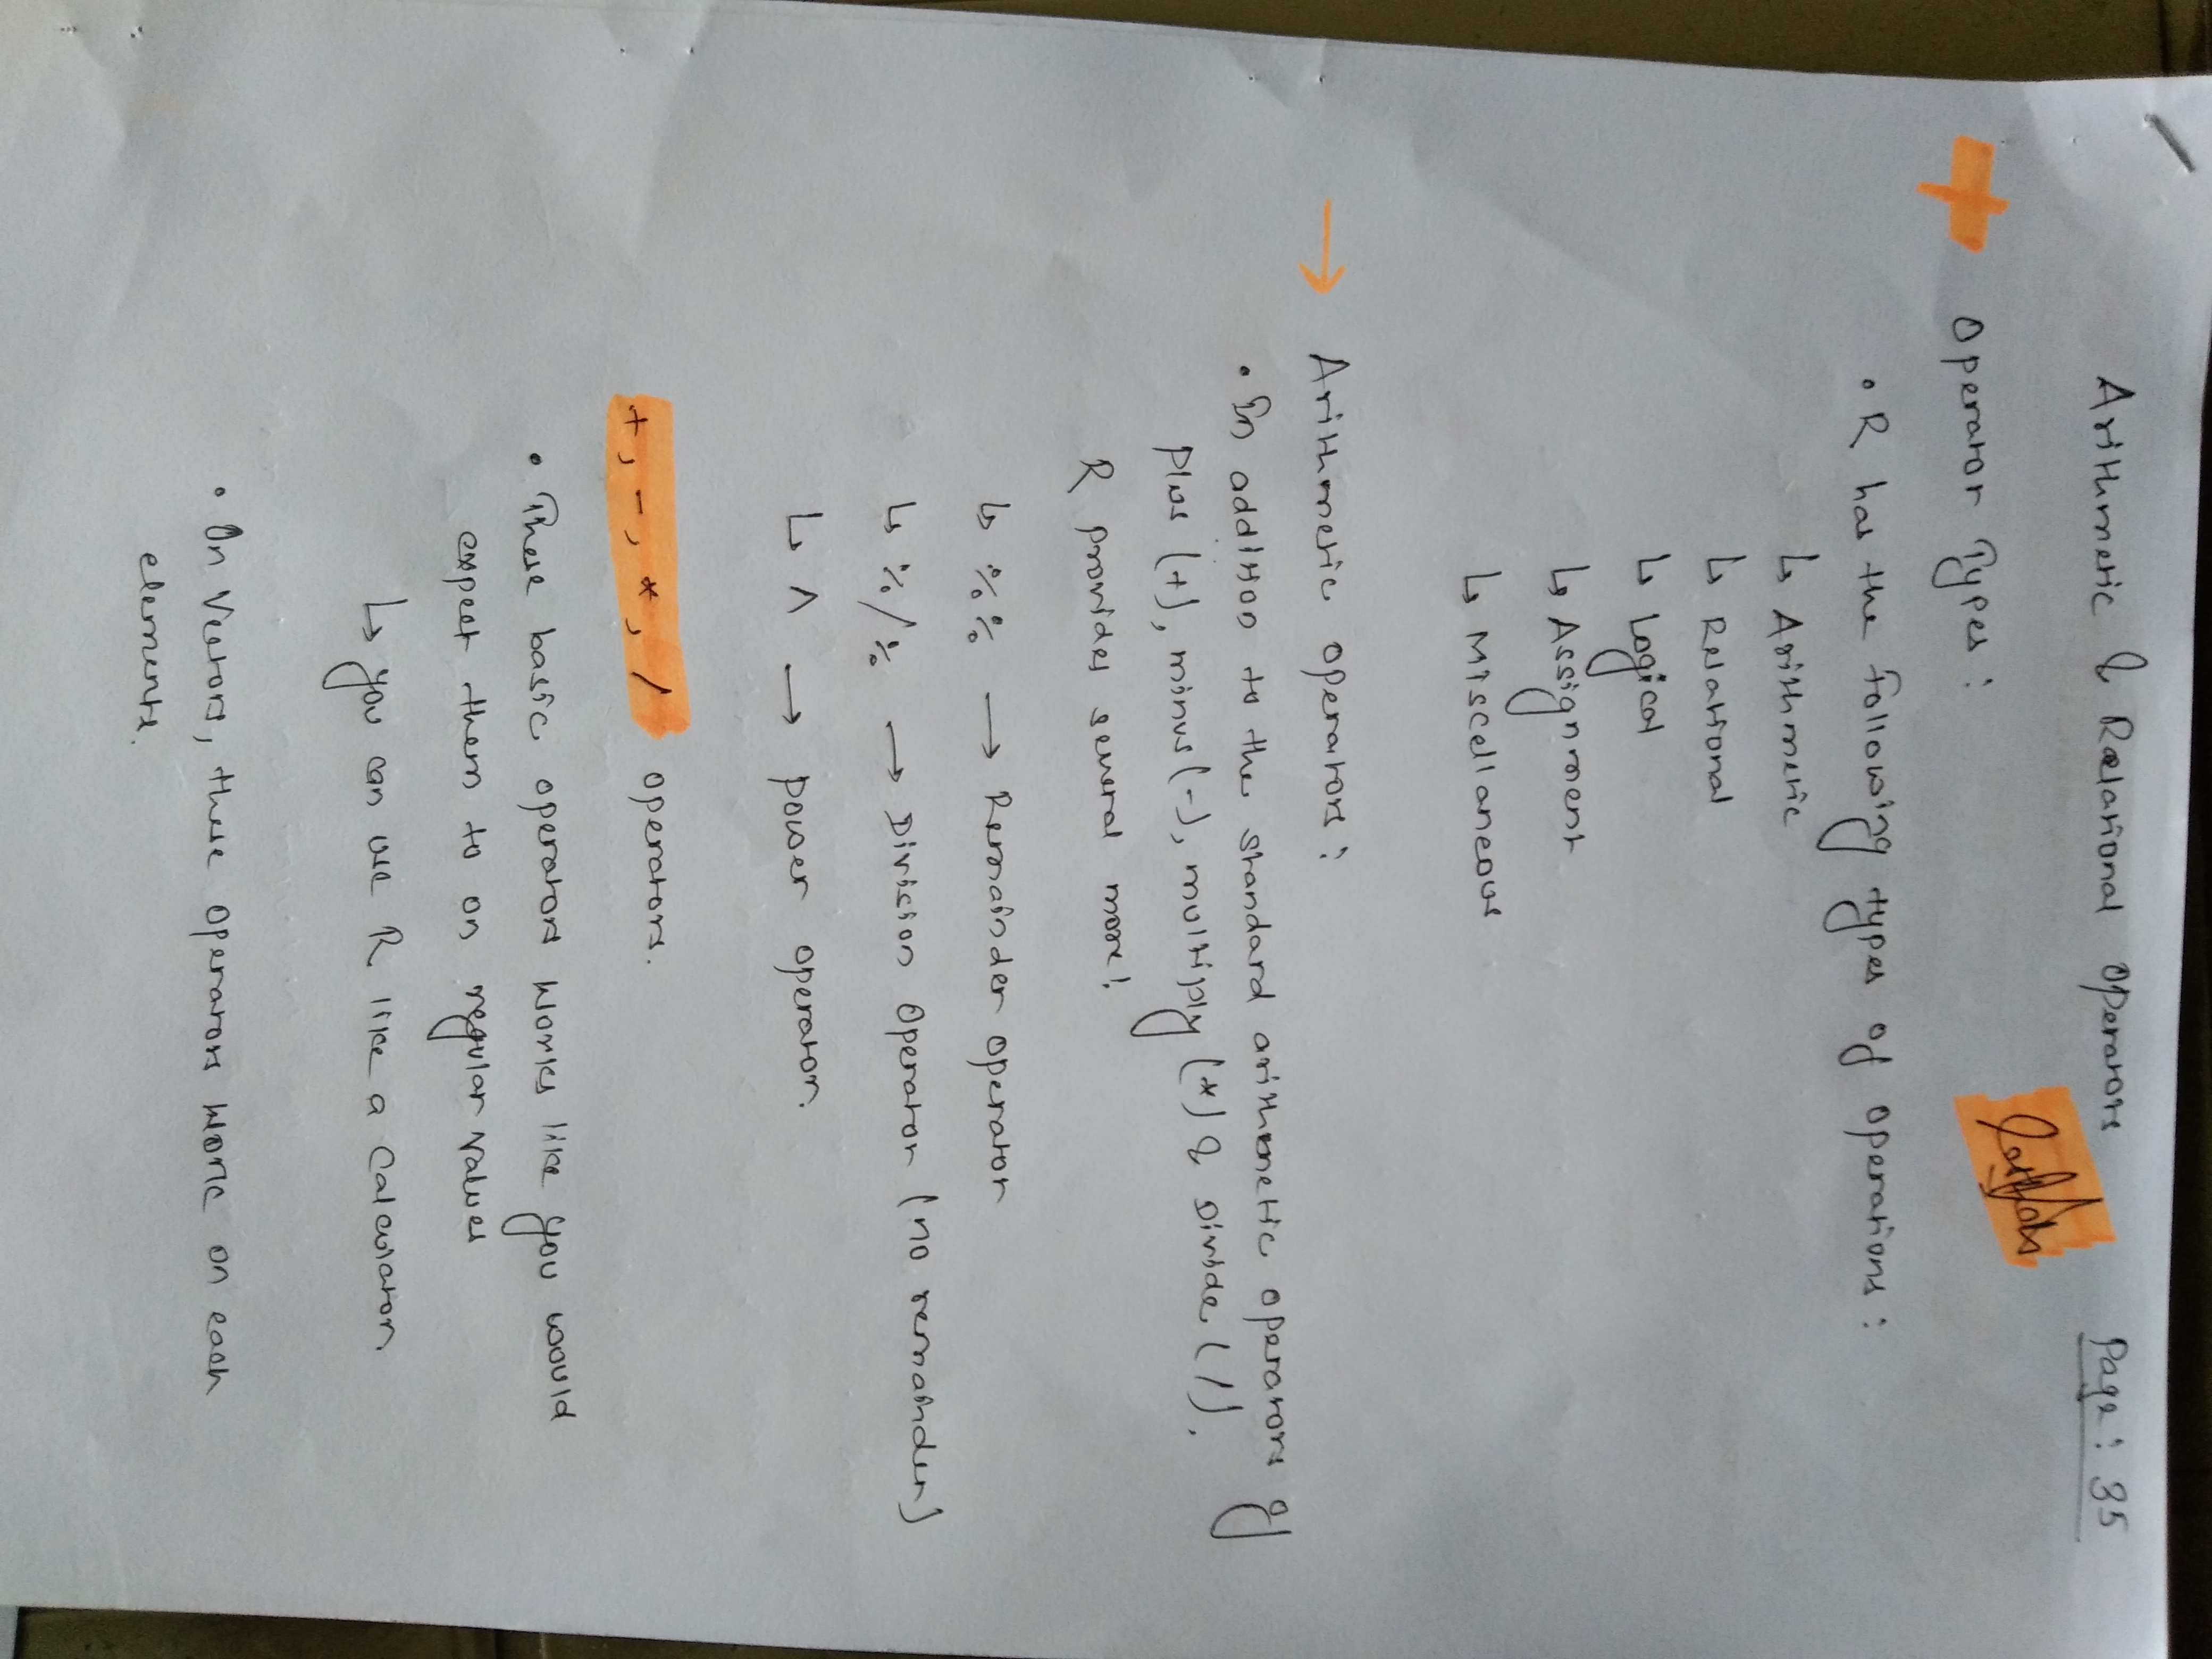 Arithmetic & Relational Operators
Page: 35
Operator Types:
• R has the following types of operations:
↳ Arithmetic
↳ Relational
↳ Logical
↳ Assignment
↳ Miscellaneous
→ Arithmetic operators:
• In addition to the standard arithmetic operators of
plus (+), minus (-), multiply (*) & Divide (/),
R provides several more!
↳ %% → Remainder operator
↳ %/% → Division operator (no remainder)
↳ ^ → power operator.
+, -, *, / operators.
• These basic operators works like you would
expect them to on regular values
↳ you can use R like a calculator
• On Vectors, these operators work on each
elements.